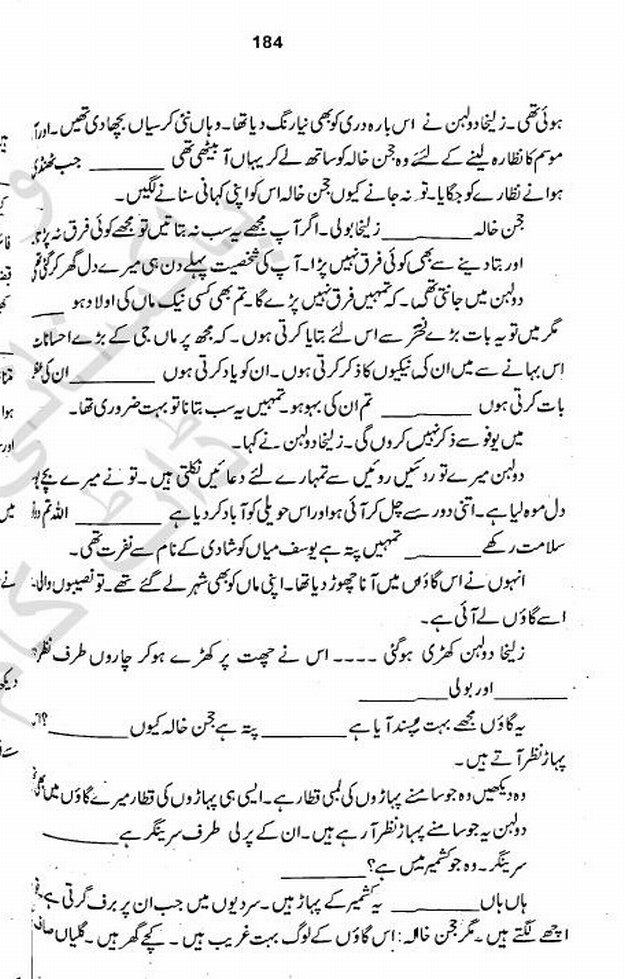 184
ہوئی تھی۔ زلیخا دولہن نے اس بارہ دری کو بھی نیا رنگ دیا تھا۔ وہاں نئی کرسیاں بچھا دی تھیں۔ اور
موسم کا نظارہ لینے کے لئے وہ جُن خالہ کو ساتھ لے کر یہاں آ بیٹھی تھی ________ جب ٹھنڈی
ہوا نے نظارے کو جگایا۔ تو نہ جانے کیوں جُن خالہ اس کو اپنی کہانی سنانے لگیں۔
جُن خالہ ________ زلیخا بولی۔ اگر آپ مجھے یہ سب نہ بتاتیں تو مجھے کوئی فرق نہ پڑتا۔
اور بتا دینے سے بھی کوئی فرق نہیں پڑا۔ آپ کی شخصیت پہلے دن ہی میرے دل گھر کر گئی تھی
دولہن میں جانتی تھی۔ کہ تمہیں فرق نہیں پڑے گا۔ تم بھی کسی نیک ماں کی اولاد ہو ___
مگر میں تو یہ بات بڑے فخر سے اس لئے بتایا کرتی ہوں۔ کہ مجھ پر ماں جی کے بڑے احسانات
اس بہانے سے میں ان کی نیکیوں کا ذکر کرتی ہوں۔ ان کو یاد کرتی ہوں ________ ان کی
بات کرتی ہوں ________ تم ان کی بہو ہو۔ تمہیں یہ سب بتانا تو بہت ضروری تھا۔
میں یوفو سے ذکر نہیں کروں گی۔ زلیخا دولہن نے کہا۔
دولہن میرے تو روئیں روئیں سے تمہارے لئے دعائیں نکلتی ہیں۔ تو نے میرے بچے
دل موہ لیا ہے۔ اتنی دور سے چل کر آئی ہو اور اس حویلی کو آباد کر دیا ہے ________ اللہ تم
سلامت رکھے ________ تمہیں پتہ ہے یوسف میاں کو شادی کے نام سے نفرت تھی۔
انہوں نے اس گاؤں میں آنا چھوڑ دیا تھا۔ اپنی ماں کو بھی شہر لے گئے تھے۔ تو نصیبوں والی
اسے گاؤں لے آئی ہے۔
زلیخا دولہن کھڑی ہو گئی ۔۔۔۔ اس نے چھت پر کھڑے ہو کر چاروں طرف نظر
________ اور بولی ________
یہ گاؤں مجھے بہت پسند آیا ہے ________ پتہ ہے جُن خالہ کیوں ________؟
پہاڑ نظر آتے ہیں۔
وہ دیکھیں وہ جو سامنے پہاڑوں کی لمبی قطار ہے۔ ایسی ہی پہاڑوں کی قطار میرے گاؤں میں
دولہن یہ جو سامنے پہاڑ نظر آ رہے ہیں۔ ان کے پرلی طرف سرینگر ہے ________
سرینگر۔ وہ جو کشمیر میں ہے؟ ________
ہاں ہاں ________ یہ کشمیر کے پہاڑ ہیں۔ سردیوں میں جب ان پر برف گرتی ہے
اچھے لگتے ہیں۔ مگر جُن خالہ: اس گاؤں کے لوگ بہت غریب ہیں۔ کچے گھر ہیں۔ گلیاں صاف